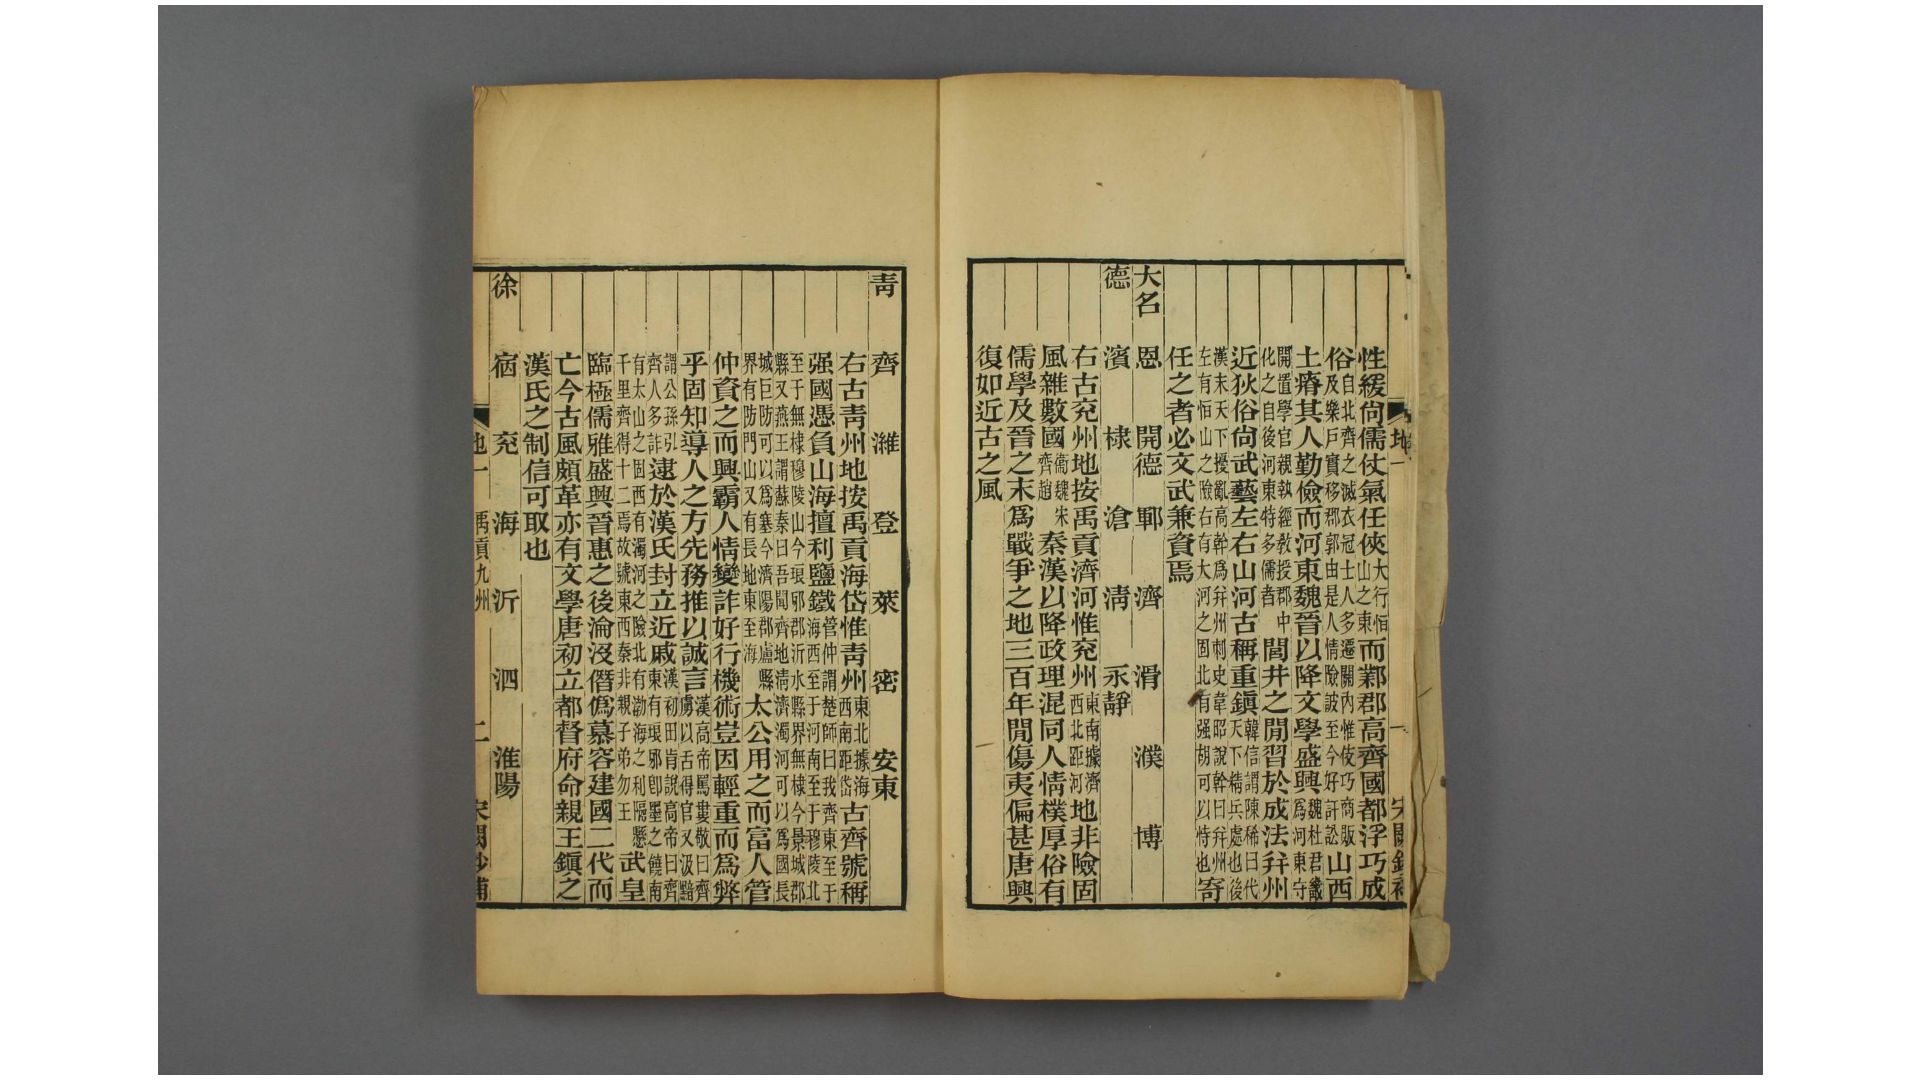 地一
性緩尙儒仗氣任俠大行恒山之東而鄴郡高齊國都浮巧成
俗自北齊之滅衣冠士人多遷關內惟伎巧商販及樂戶實移郡郭由是人情險詖至今好訐訟山西
土瘠其人勤儉而河東魏晉以降文學盛興魏杜君畿爲河東守
開置學官親執經敎授郡中化之自後河東特多儒者閭井之閒習於成法幷州
近狄俗尙武藝左右山河古稱重鎭韓信謂陳稀曰代天下精兵處也後
漢末天下擾亂高幹爲幷州刺史韋昭說幹曰幷州左有恒山之險右有大河之固北有强胡可以恃也寄
任之者必文武兼資焉
大名 恩 開德 鄆 濟 滑 濮 博
德 濱 棣 滄 淸 永靜
右古兖州地按禹貢濟河惟兖州東南據濟西北距河地非險固
風雜數國衞魏宋齊趙秦漢以降政理混同人情樸厚俗有
儒學及晉之末爲戰爭之地三百年閒傷夷偏甚唐興
復如近古之風
靑 齊 濰 登 萊 密 安東
右古靑州地按禹貢海岱惟靑州東北據海西南距岱古齊號稱
强國憑負山海擅利鹽鐵管仲謂楚師曰我齊東至于海西至于河南至于穆陵北
至于無棣穆陵山今琅邪郡沂水縣界無棣今景城郡縣又燕王謂蘇秦曰吾聞齊地淸濟濁河可以爲國長
城巨防可以爲塞今濟陽郡盧縣界有防門山又有長地東至海太公用之而富人管
仲資之而興霸人情變詐好行機術豈因輕重而爲弊
乎固知導人之方先務推以誠言漢高帝罵婁敬曰齊虜以舌得官又汲黯
謂公孫引齊人多詐逮於漢氏封立近戚漢初田肯說高帝曰齊東有琅邪卽墨之饒南
有太山之固西有濁河之險北有渤海之利隔懸千里齊得十二焉故號東西秦非親子弟勿王武皇
臨極儒雅盛興晉惠之後淪沒僭僞慕容建國二代而
亡今古風頗革亦有文學唐初立都督府命親王鎭之
漢氏之制信可取也
徐 宿 兖 海 沂 泗 淮陽
地一 禹貢九州 二 宋閣鈔補